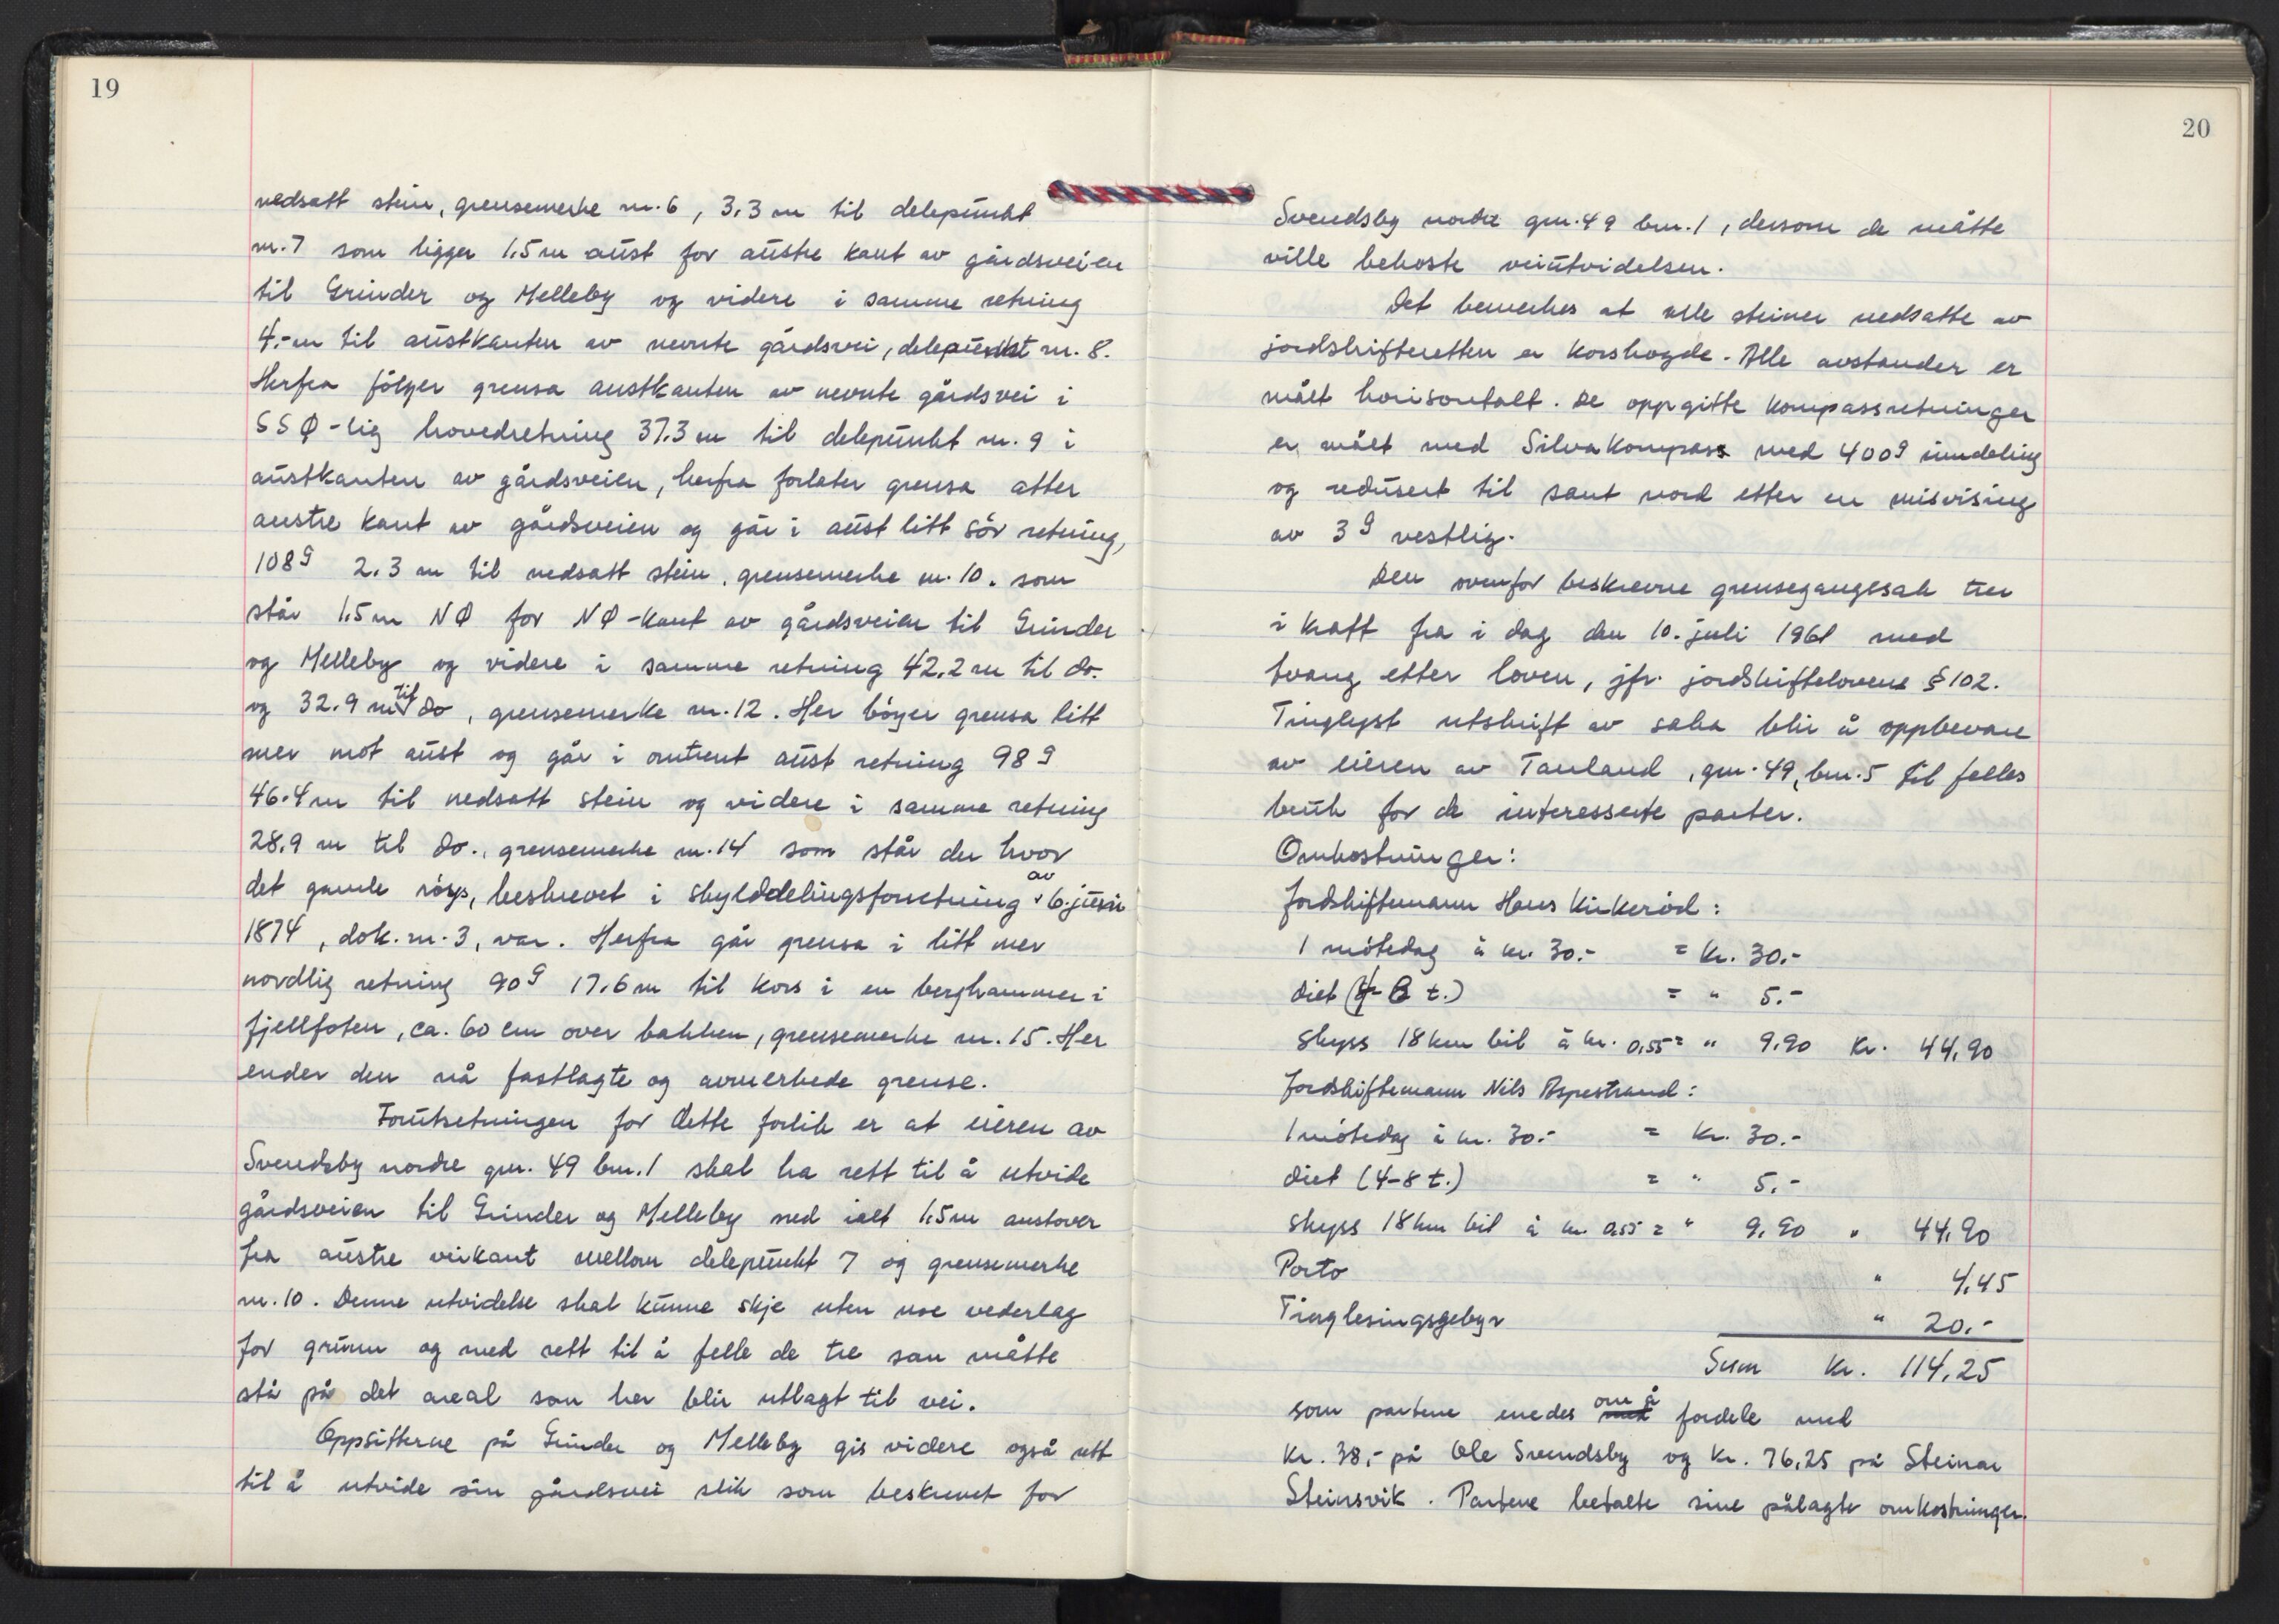 19
nedsatt stein, grensemerke nr. 6, 3,3 m til delepunkt
nr. 7 som ligger 1,5 m aust for austre kant av gårdsveien
til Grinder og Melleby og videre i samme retning
4,- m til austkanten av nevnte gårdsvei, delepunkt nr. 8.
Herfra følger grensa austkanten av nevnte gårdsvei i
SSØ-lig hovedretning 37.3 m til delepunkt nr. 9 i
austkanten av gårdsveien, herfra forlater grensa atter
austre kant av gårdsveien og går i aust litt sør retning,
108g 2.3 m til nedsatt stein, grensemerke nr. 10. som
står 1.5 m NØ for NØ-kant av gårdsveien til Grinder
og Melleby og videre i samme retning 42.2 m til do.
og 32.9 m til do, grensemerke nr. 12. Her bøyer grensa litt
mer mot aust og går i omtrent aust retning 98g
46.4 m til nedsatt stein og videre i samme retning
28.9 m til do., grensemerke nr. 14 som står der hvor
det gamle røys, beskrevet i skylddelingsforretning av 6. juni
1874, dok. nr. 3, var. Herfra går grensa i litt mer
nordlig retning 90g 17.6 m til kors i en berghammer i
fjellfoten, ca. 60 cm over bakken, grensemerke nr. 15. Her
ender den nå fastlagte og avmerkede grense.
Forutsetningen for dette forlik er at eieren av
Svendsby nordre gnr. 49 bnr. 1 skal ha rett til å utvide
gårdsveien til Grinder og Melleby med ialt 1.5 m austover
fra austre veikant mellom delepunkt 7 og grensemerke
nr. 10. Denne utvidelse skal kunne skje uten noe vederlag
for grunn og med rett til å felle de tre som måtte
stå på det areal som her blir utlagt til vei.
Oppsitterne på Grinder og Melleby gis videre også rett
til å utvide sin gårdsvei slik som beskrevet for
20
Svendsby nordre gnr. 49 bnr. 1, dersom de måtte
ville bekoste veiutvidelsen.
Det bemerkes at alle steiner nedsatte av
jordskifteretten er korshogde. Alle avstander er
målt horisontalt. De oppgitte kompassretninger
er målt med Silva kompass med 400g inndeling
og redusert til sant nord etter en misvising
av 3g vestlig.
Den ovenfor beskrevne grensegangssak trer
i kraft fra i dag den 10. juli 1961 med
tvang etter loven, jfr. jordskiftelovens § 102.
Tinglyst utskrift av saka blir å oppbevare
av eieren av Tanland, gnr. 49, bnr. 5 til felles
bruk for de interesserte parter.
Omkostninger:
Jordskiftemann Hans Kirkerød:
1 møtedag à kr. 30.- = kr. 30.-
diet (4-8 t.) = " 5.-
Skyss 18 km bil à kr. 0,55 = " 9,90 kr. 44,90
Jordskiftemann Nils Aspestrand:
1 møtedag à kr. 30.- = kr. 30.-
diet (4-8 t.) = " 5.-
Skyss 18 km bil à kr 0,55 = " 9,90 " 44,90
Porto " 4,45
Tinglesingsgebyr " 20.-
Sum kr. 114,25
som partene enedes om å fordele med
kr. 38,- på Ole Svendsby og kr. 76,25 på Steinar
Steinsvik. Partene betalte sine pålagte omkostninger.